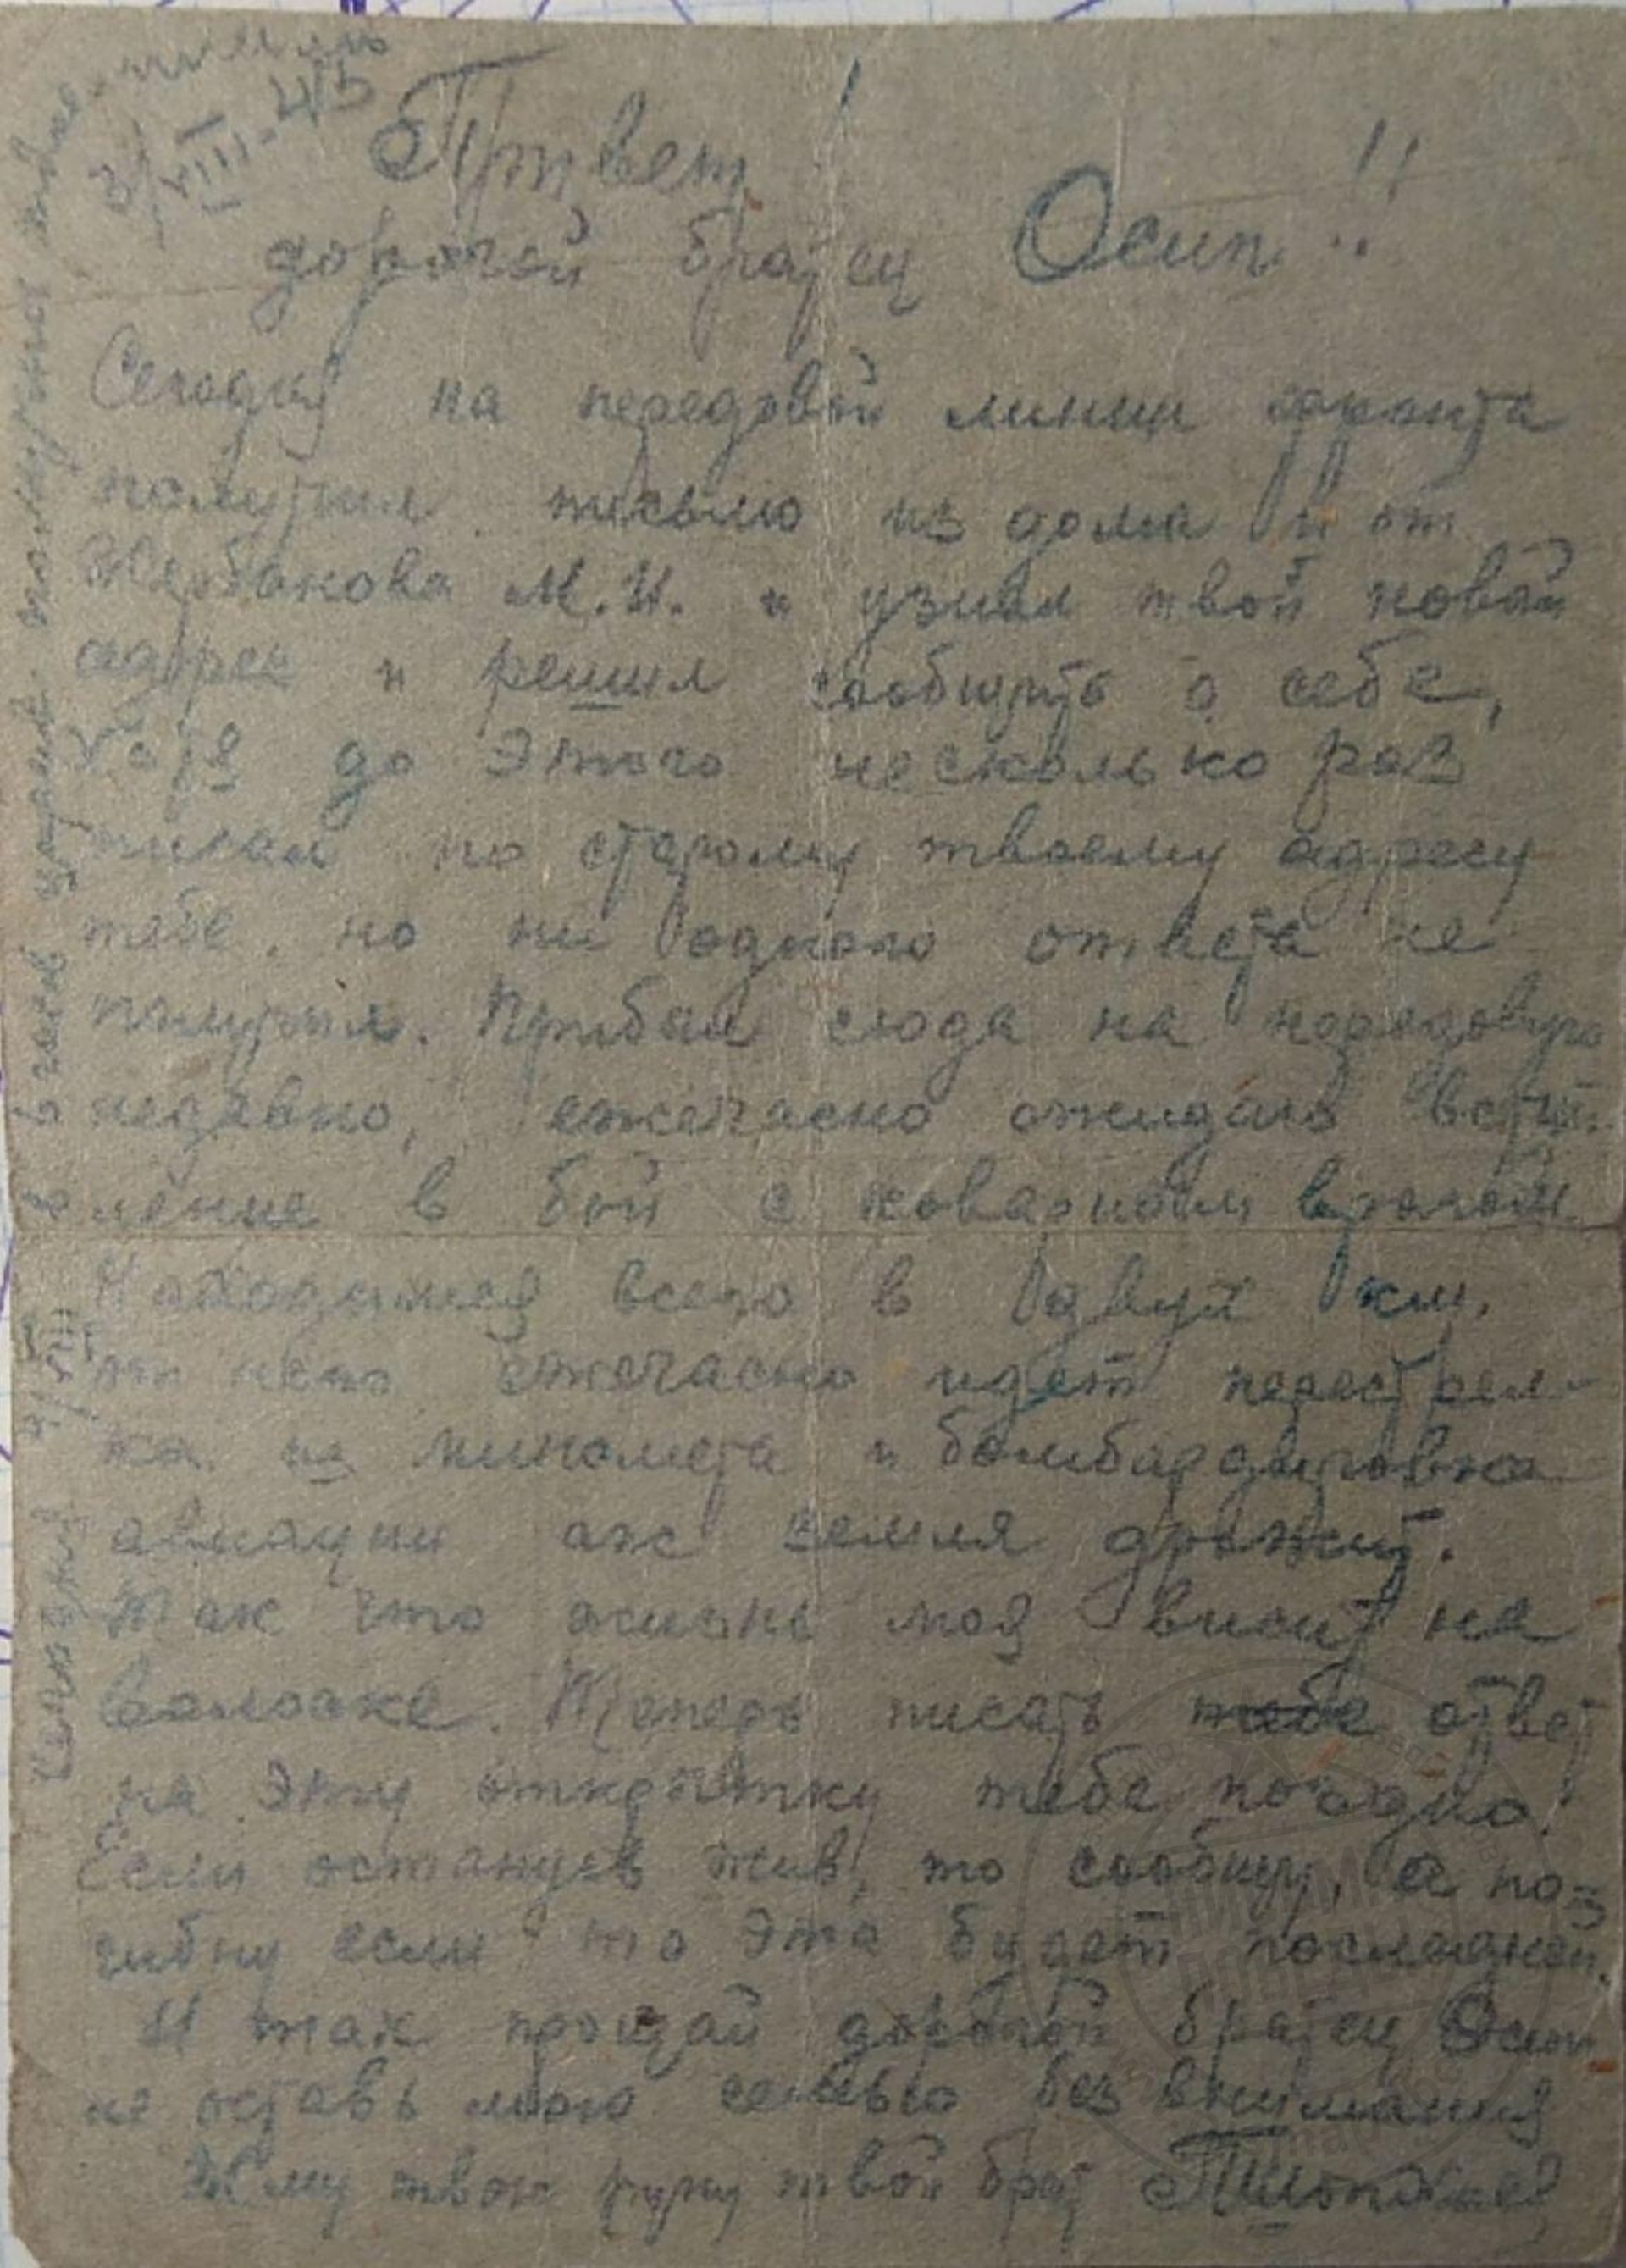 3/VIII-43
Привет!
дорогой братец Осип!!
Сегодня на передовой линии фронта
получил письмо из дома и от
Жербанова М.И. и узнал твой новый
адрес и решил сообщить о себе,
Хотя до этого несколько раз
писал по старому твоему адресу
тебе, но ни одного ответа не
получил. Прибыл сюда на передовую
недавно, ежечасно ожидаю вступ-
ление в бой с коварным врагом
Находимся всего в двух км.
от него ежечасно идет перестрел-
ка из миномета и бомбардировка
авиации аж земля дрожит.
Так что жизнь моя висит на
волоске. Теперь писать тебе ответ
на эту открытку тебе поздно!
Если останусь жив, то сообщу, а по-
гибну если то эта будет последней.
И так прощай дорогой братец Осип
не оставь мою семью без внимания
Жму твою руку твой брат
Сегодня 4/VIII в 6 часов утра